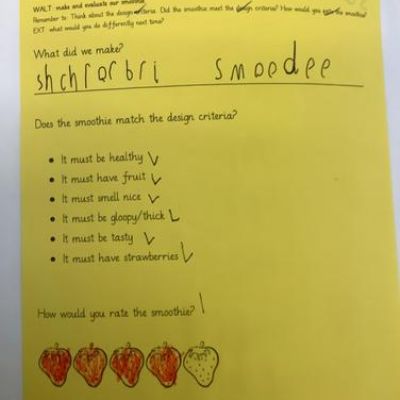 WALT: make and evaluate our smoothie.
Remember to: Think about the design criteria. Did the smoothie meet the design criteria? How would you rate the smoothie?
EXT: what would you do differently next time?
What did we make?
shchrarbri smoedee
Does the smoothie match the design criteria?
• It must be healthy ✓
• It must have fruit ✓
• It must smell nice ✓
• It must be gloopy/thick ✓
• It must be tasty ✓
• It must have strawberries ✓
How would you rate the smoothie?